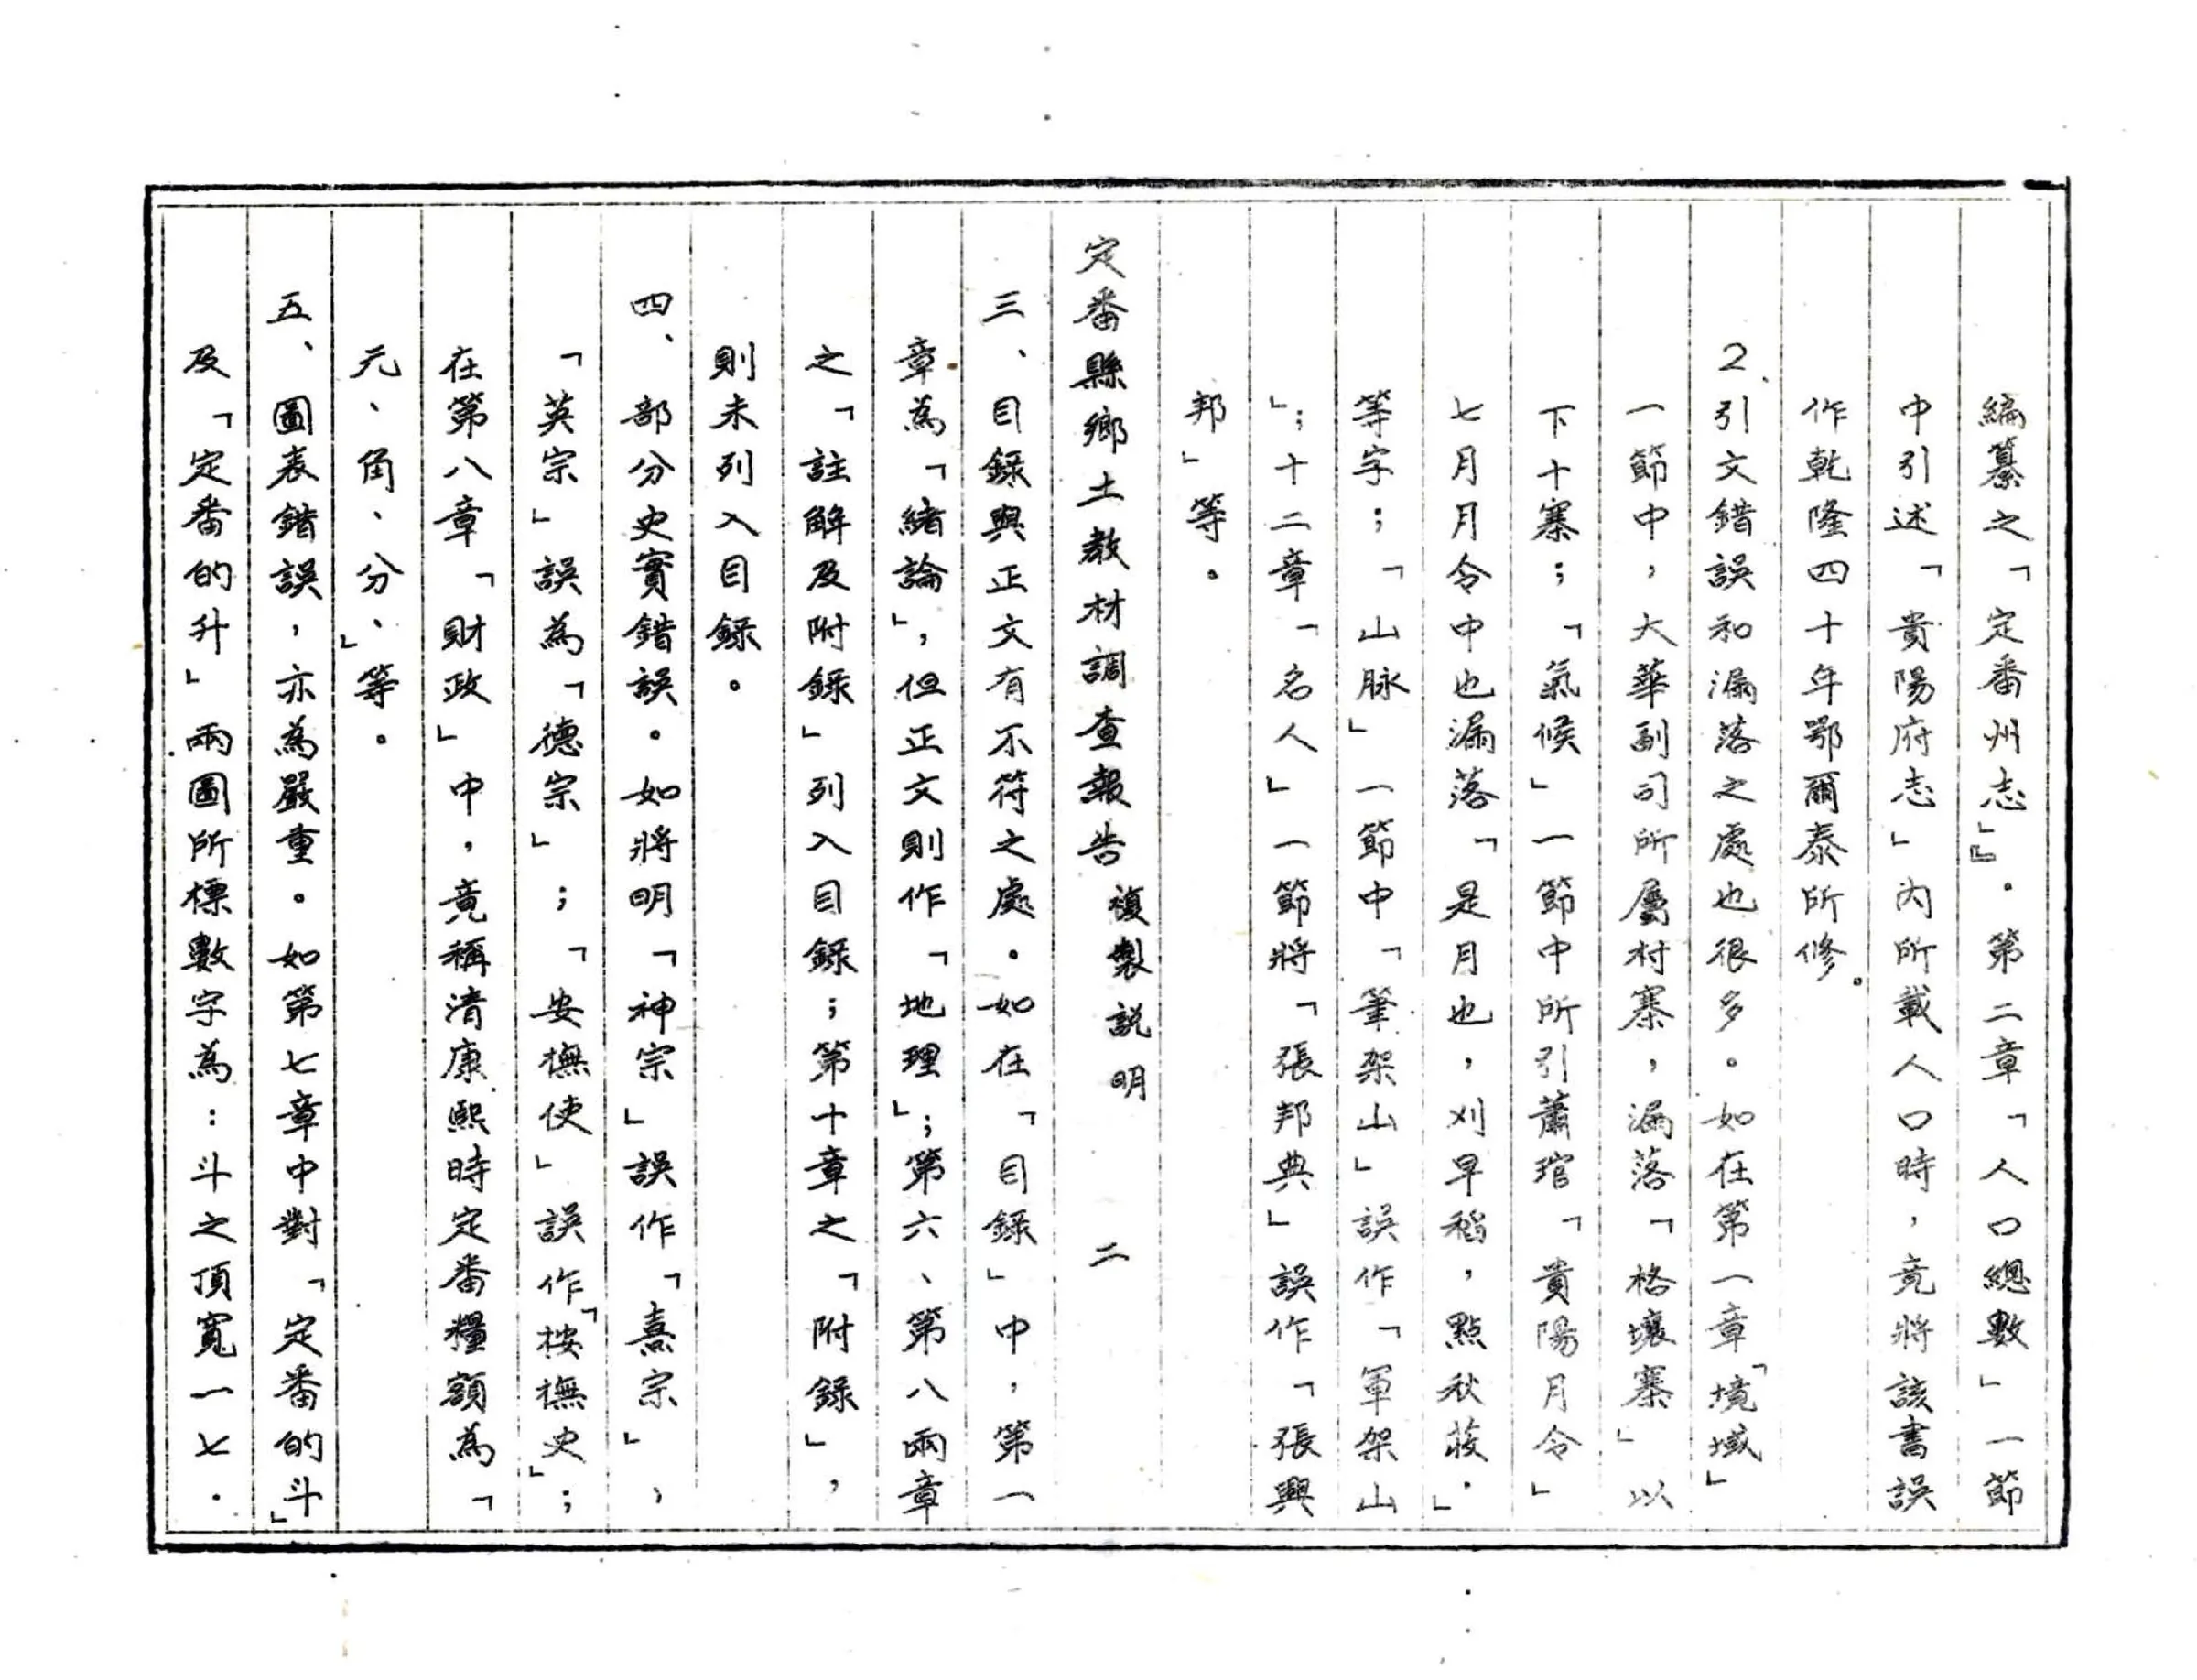 編纂之「定番州志」』。第二章「人口總數」一節
中引述「貴陽府志」內所載人口時，竟將該書誤
作乾隆四十年鄂爾泰所修。
2、引文錯誤和漏落之處也很多。如在第一章「境域」
一節中，大華副司所屬村寨，漏落「格壤寨」以
下十寨；「氣候」一節中所引蕭琯「貴陽月令」
七月月令中也漏落「是月也，刈早稻，點秋荍。」
等字；「山脉」一節中「筆架山」誤作「軍架山
」；十二章「名人」一節將「張邦典」誤作「張興
邦」等。
定番縣鄉土教材調查報告 複製説明 二
三、目錄與正文有不符之處。如在「目錄」中，第一
章為「緒論」，但正文則作「地理」；第六、第八兩章
之「註解及附錄」列入目錄；第十章之「附錄」，
則未列入目錄。
四、部分史實錯誤。如將明「神宗」誤作「熹宗」，
「英宗」誤為「德宗」；「安撫使」誤作「桉撫史」；
在第八章「財政」中，竟稱清康熙時定番糧額為「
元、角、分、」等。
五、圖表錯誤，亦為嚴重。如第七章中對「定番的斗」
及「定番的升」兩圖所標數字為：斗之頂寬一七．